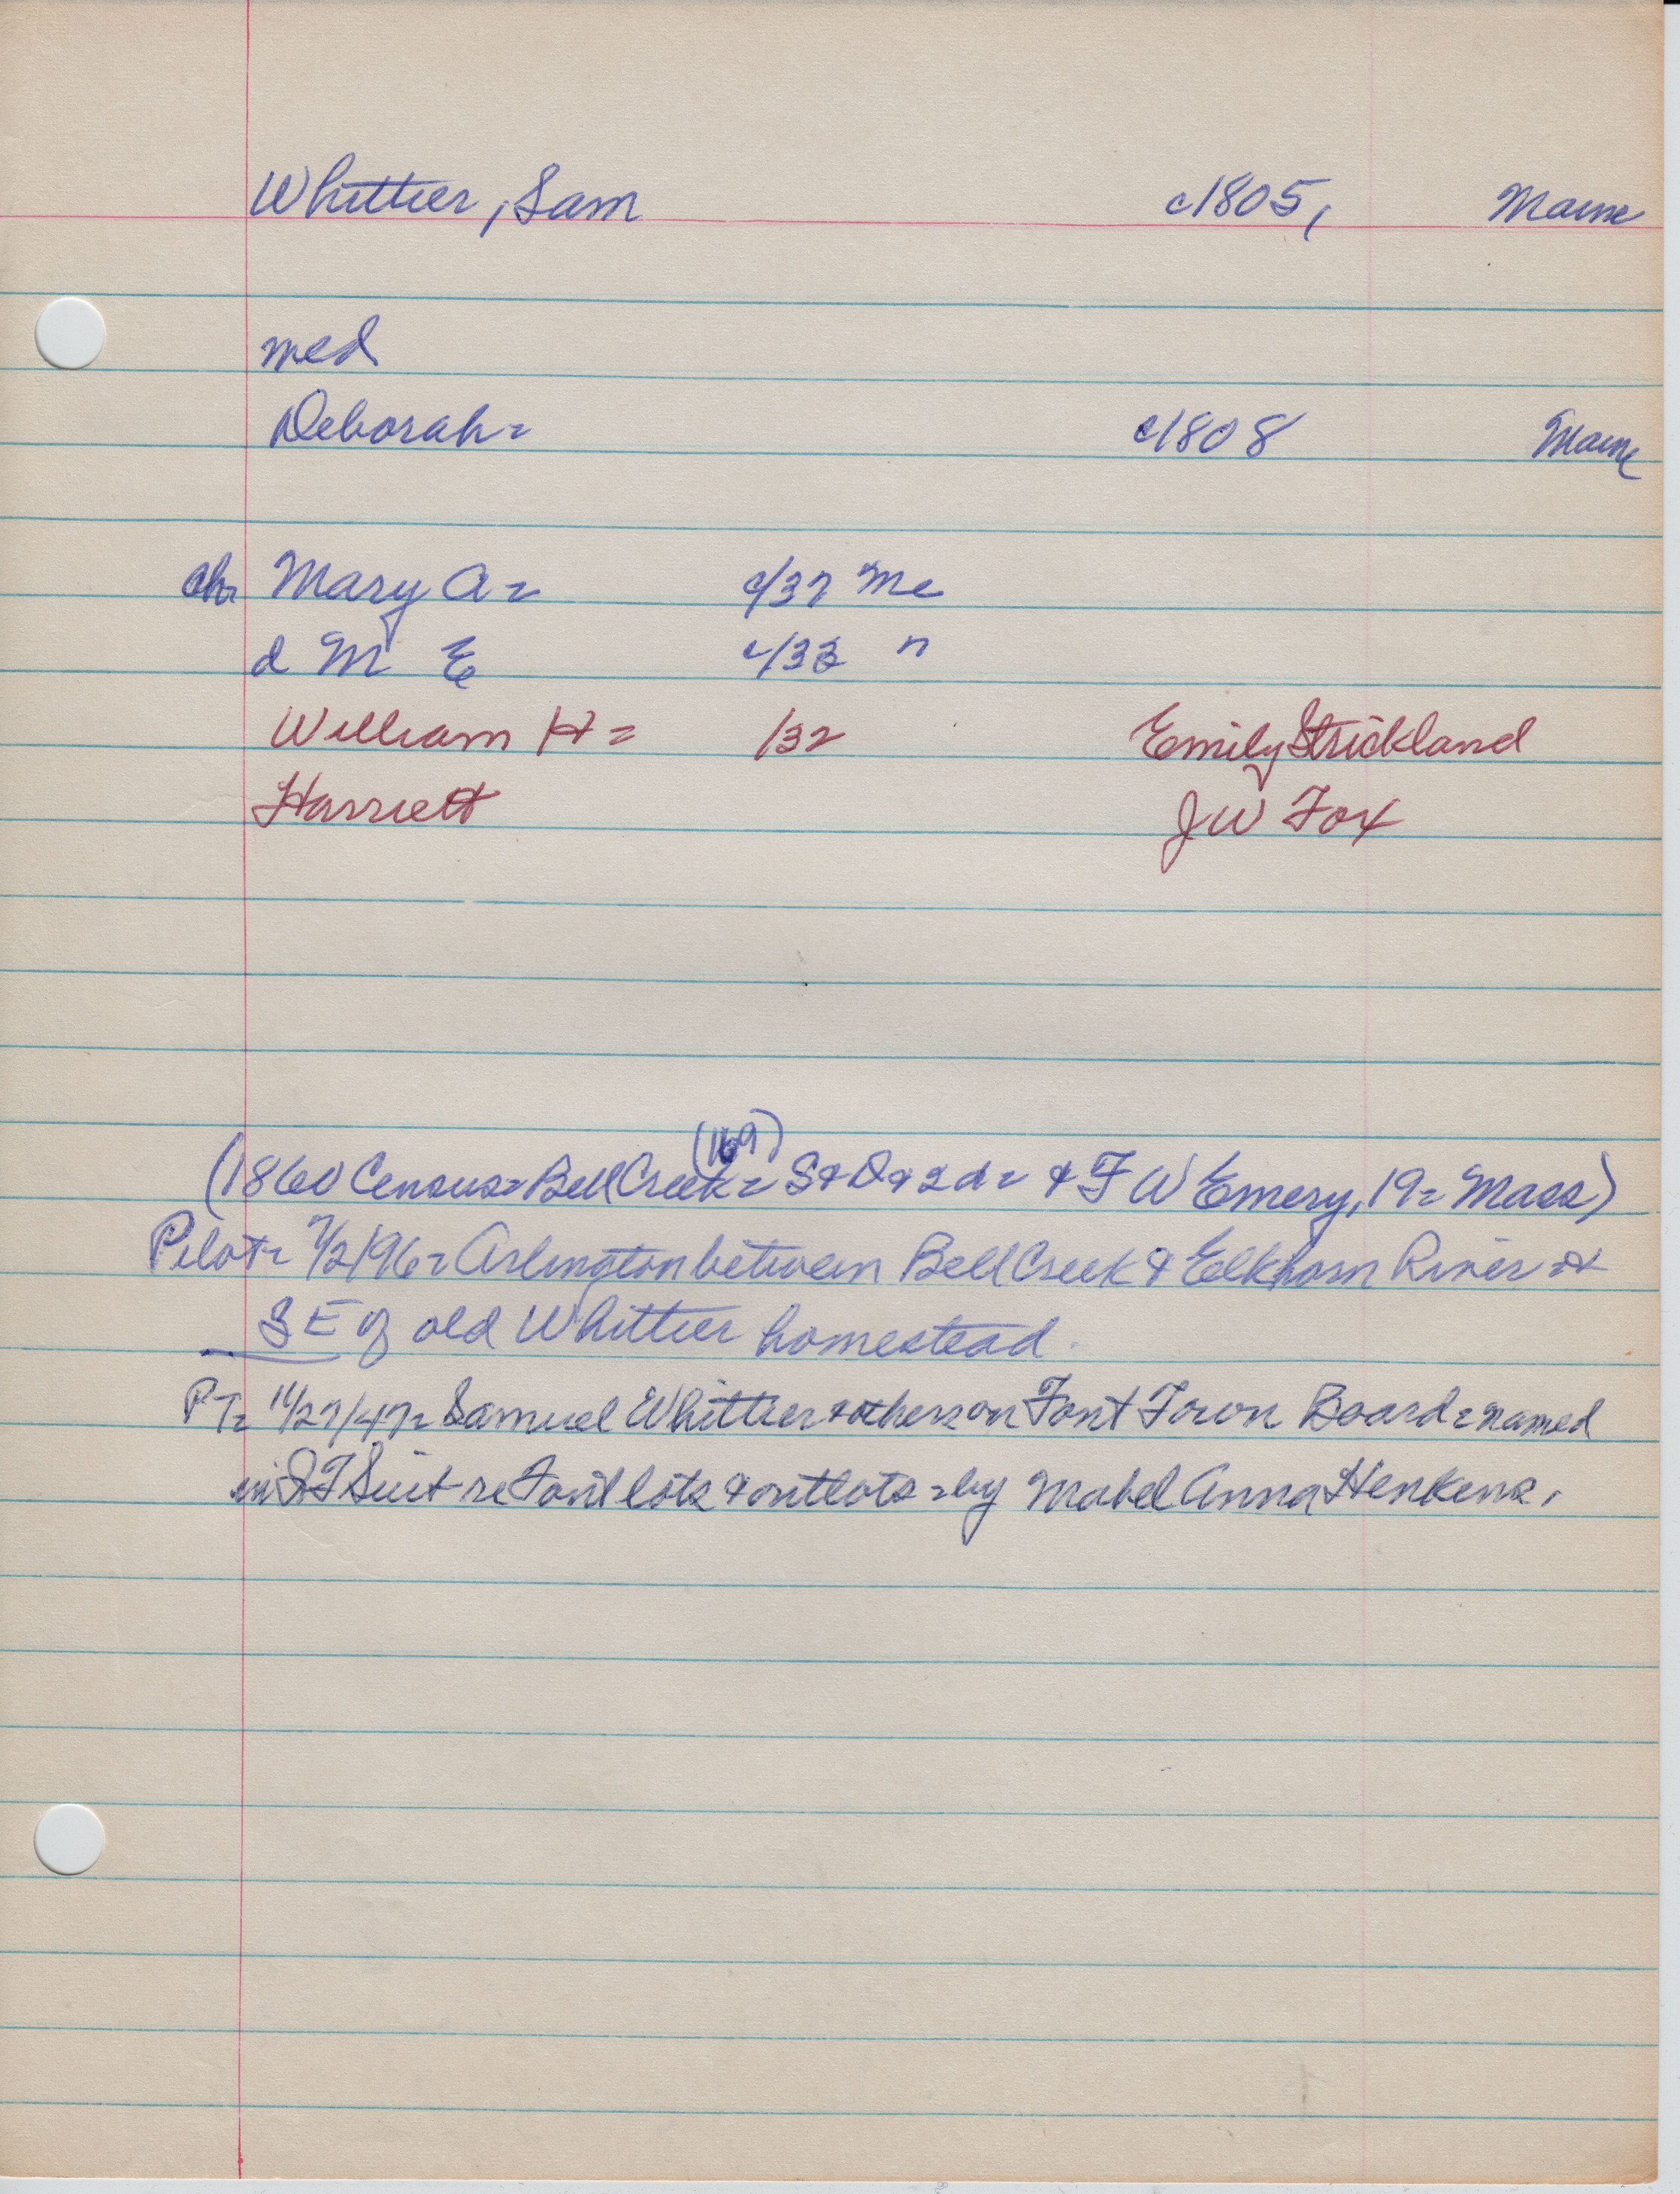 Whittier, Sam c1805, Maine
med
Deborah= c1808 Maine
ch= Mary A= c/37 Me
d M E c/33 "
William H= /32 Emily Strickland
Harriett J W Fox
(169)
(1860 Census= Bell Creek= S & D & 2 d= & F W Emery, 19= Mass)
Pilot= 7/2/96= Arlington between Bell Creek & Elkhorn River &
SE of old Whittier homestead.
PT= 11/27/47= Samuel Whittier & others on Font Town Board= named
in QT Suit re Font lots & outlots= by Mabel Anna Henkens.